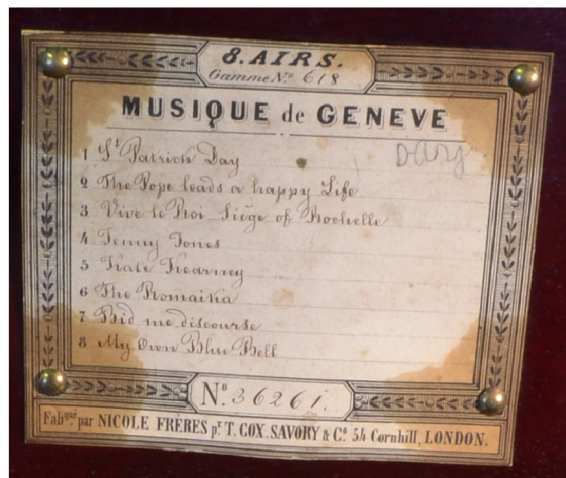 8. AIRS.
Gamme Nº 618
MUSIQUE de GENEVE
1 St Patrick Day
2 The Pope leads a happy Life
3 Vive le Roi Siége of Rochelle
4 Jenny Jones
5 Kate Kearney
6 The Romaika
7 Bid me discourse
8 My Own Blue Bell
Nº 36261.
Fabqué par NICOLE FRÈRES pr T. COX. SAVORY & Cº 54 Cornhill, LONDON.